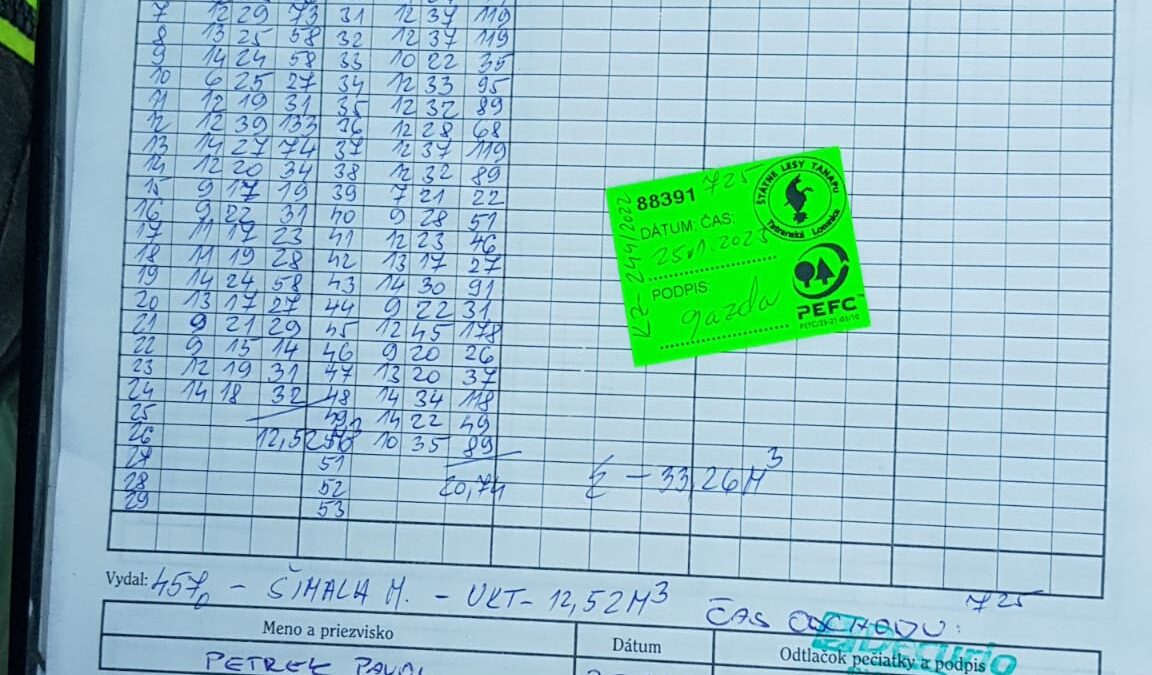 7 12 29 73 31 12 37 119
8 13 25 58 32 12 37 119
9 14 24 58 33 10 22 35
10 6 25 27 34 12 33 95
11 12 19 31 35 12 32 89
12 12 39 133 36 12 28 68
13 14 27 74 37 12 37 119
14 12 20 34 38 12 32 89
15 9 17 19 39 7 21 22
16 9 22 31 40 9 28 51
17 11 17 23 41 12 23 46
18 11 19 28 42 13 17 27
19 14 24 58 43 14 30 91
20 13 17 27 44 9 22 31
21 9 21 29 45 12 45 178
22 9 15 14 46 9 20 26
23 12 19 31 47 13 20 37
24 14 18 32 48 14 34 118
25 49 14 22 49
26 12,52 50 10 35 89
27 51
28 52 20,74
29 53
Σ - 33,26 M³
88391 725
DÁTUM: ČAS:
25.11.2025
PODPIS:
gazda
KZ 244/2022
ŠTÁTNE LESY TANAPU
Tatranská Lomnica
PEFC™
PEFC/23-21-03/10
Vydal: 457 - ŠIMALA M. - UKT - 12,52 M³
ČAS ODCHODU: 725
Meno a priezvisko Dátum Odtlačok pečiatky a podpis
PETREK